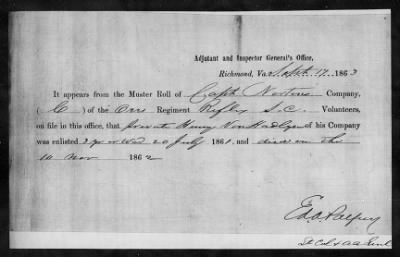 Adjutant and Inspector General's Office,
Richmond, Va. Sept. 17, 1863
It appears from the Muster Roll of Capt. Nortons Company,
( C ) of the Orrs Regiment Rifles S.C. Volunteers,
on file in this office, that private Henry Von Hadlyn of his Company
was enlisted 3 yr or War 20 July 1861, and died on the
10 Nov 1862
Ed A Palfrey